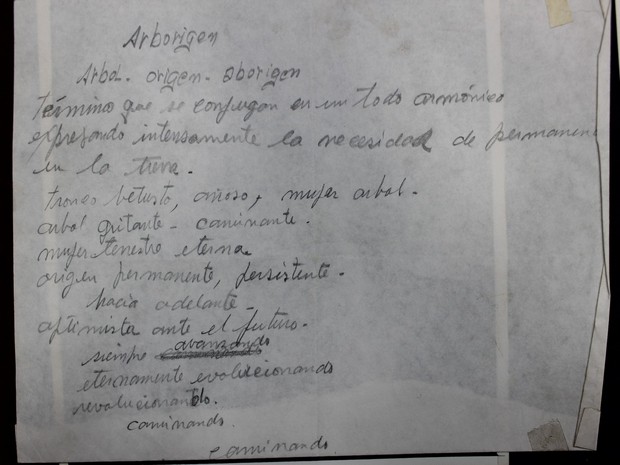 Arborigen
Arbol - origen - aborigen
Término que se conjugan en un todo armónico
expresando intensamente la necesidad de permanenc
en la tierra.
tronco vetusto, añoso, mujer arbol -
arbol gritante - caminante.
mujer terrestre eterna
origen permanente, persistente -
hacia adelante -
optimista ante el futuro.
siempre avanzando
eternamente evolucionando
revolucionando.
caminando.
caminando.